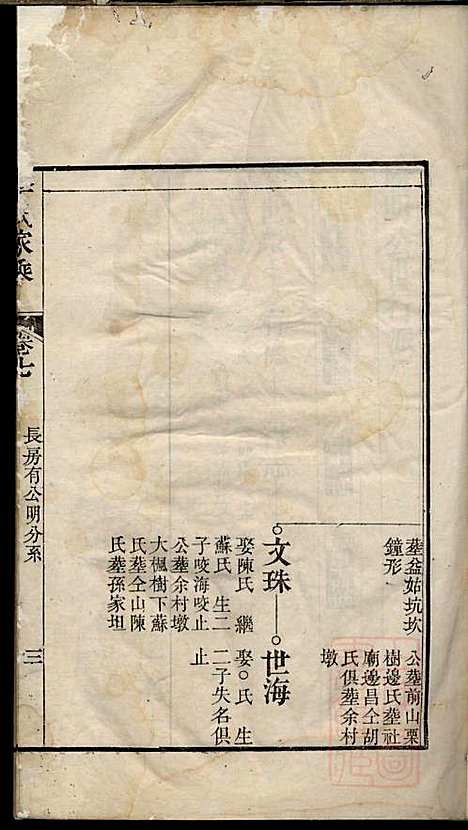 葬益姑坑坎
鐘形
公葬前山栗
樹邊氏葬社
廟邊昌仝胡
氏俱葬余村
墩
文珠
世海
娶陳氏 繼
蘇氏 生二
子咬海咬止
公葬余村墩
大楓樹下蘇
氏葬仝山陳
氏葬孫家坦
娶○氏 生
二子失名俱
止
氏家乘
卷七
長房有公明分系
三